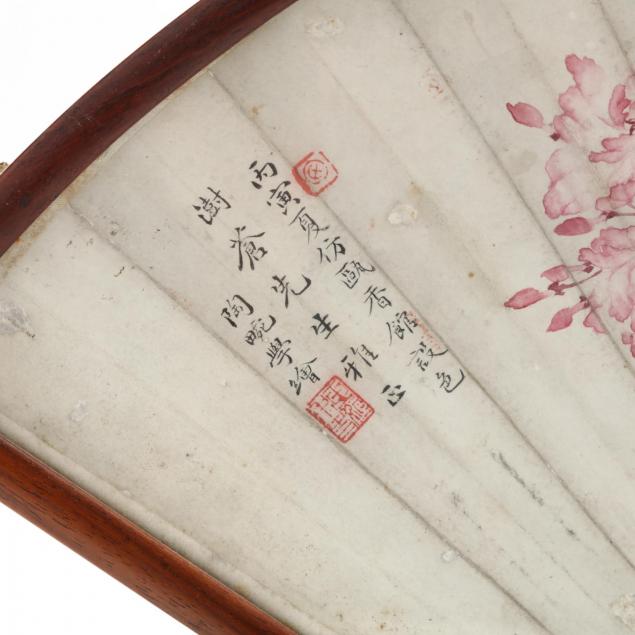 丙寅夏仿甌香館設色
澍蒼先生雅正
陶畹學繪